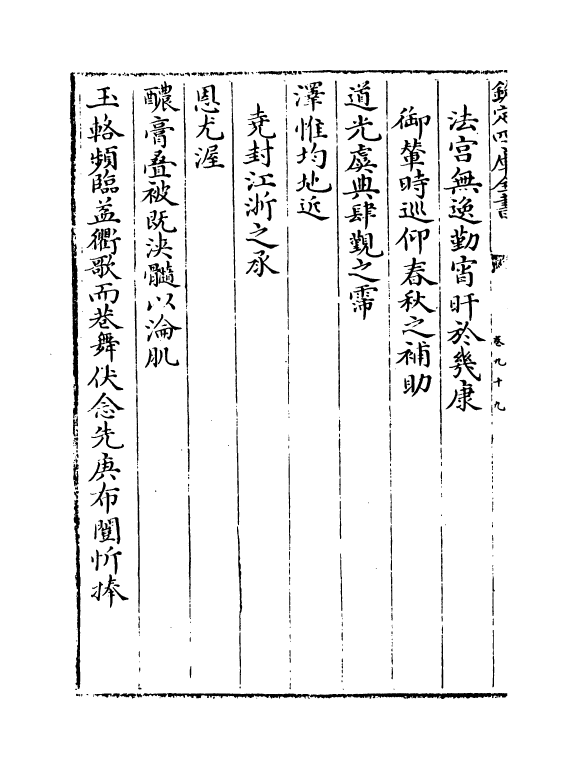 欽定四庫全書
卷九十九
法宫無逸勤宵旰於幾康
御輦時巡仰春秋之補助
道光虞典肆覲之霈
澤惟均地近
堯封江浙之承
恩尤渥
醲膏叠被既浹髓以淪肌
玉輅頻臨益衢歌而巷舞伏念先庚布闓忻捧